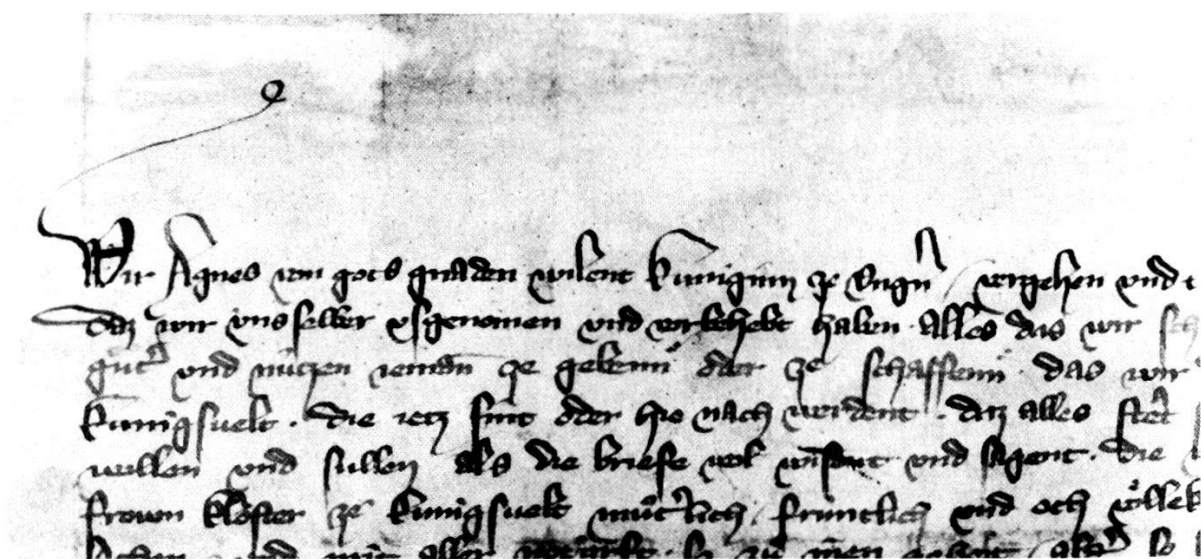 Wir Agnes von gots gnaden wilent kuniginn ze Ungern / veriehen und
daz wir uns selber usgenomen und vorbehebt haben alles das wir
guter und nutzen ieman ze gebenn oder ze schaffenn das wir
kunigsuelt . die ietz sint oder hie nach werdent . daz alles stet
wellen und sullen als die briefe wol wisent und sagent . die
frowen kloster ze kunigsuelt muterlich / fruntlich und och
und mit aller